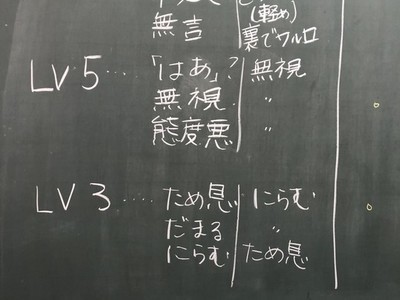 (軽め)
無言 裏でワルロ
LV 5 ‥‥ 「はあ」? 無視
無視 〃
態度悪 〃
LV 3 ‥‥ ため息 にらむ
だまる 〃
にらむ ため息